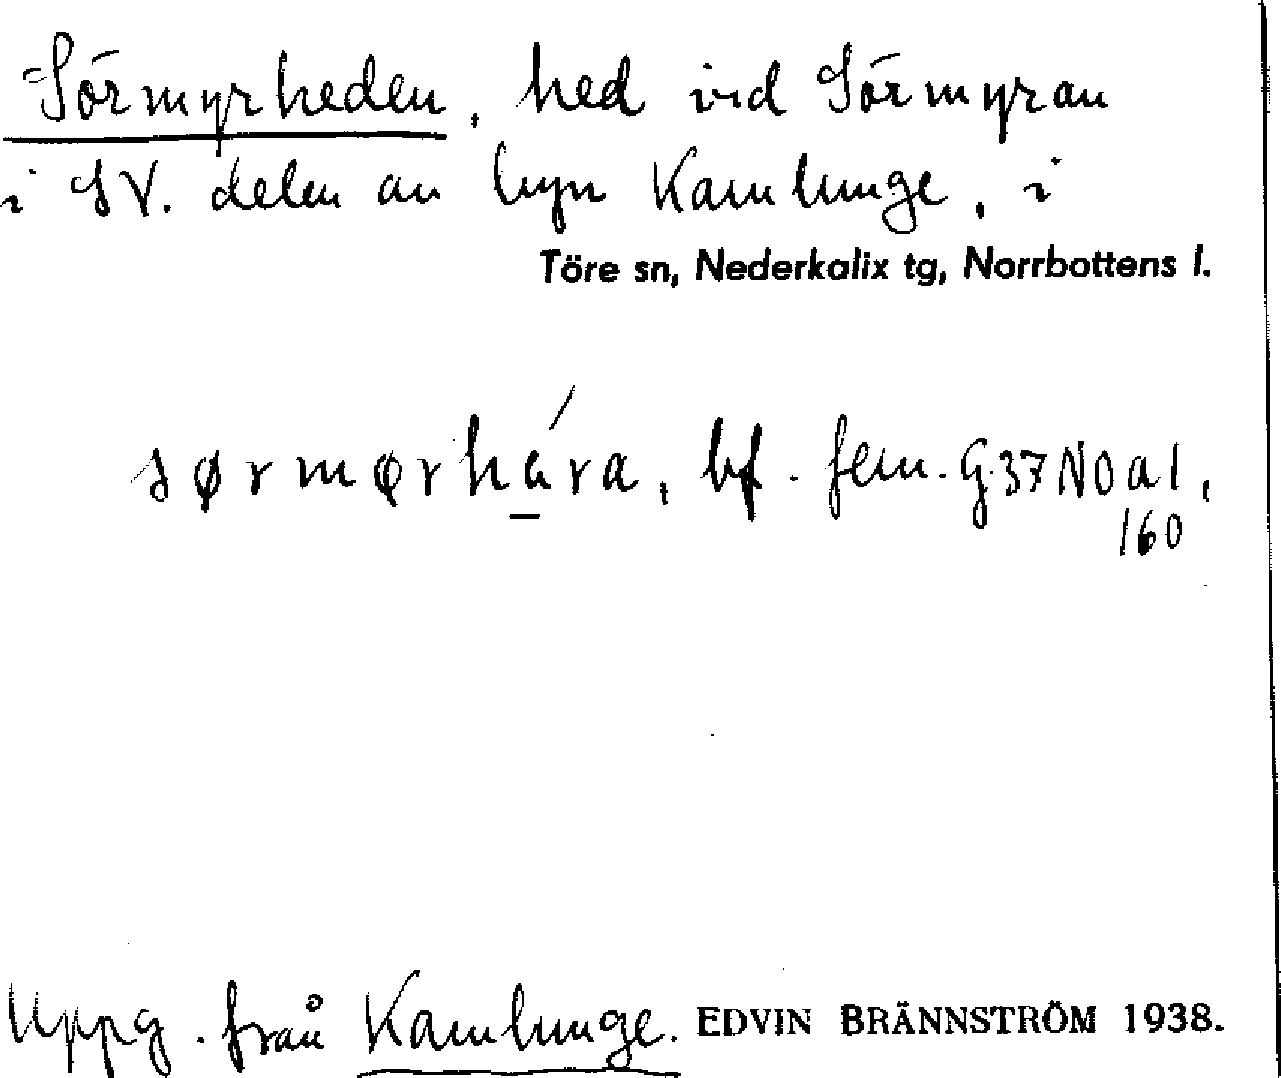 Sörmyrheden, hed vid Sörmyran
i SV. delen av byn Kamlunge, i
Töre sn, Nederkalix tg, Norrbottens l.
sørmørhá̱ra, bf. fem. G.37NOa1,
160
Uppg. från Kamlunge. EDVIN BRÄNNSTRÖM 1938.